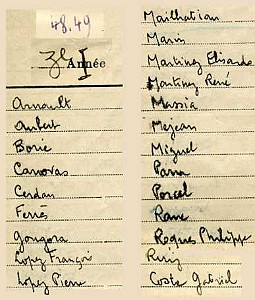 48.49
3e I
Année
Arnault
Aubert
Borie
Canovas
Cerdan
Ferrès
Gongora
Lopez François
Lopez Pierre
Mailhatian
Maris
Martinez Elisardo
Martinez René
Massia
Mejean
Miguel
Parra
Porcel
Rame
Roques Philippe
Ruiz
Costa Gabriel